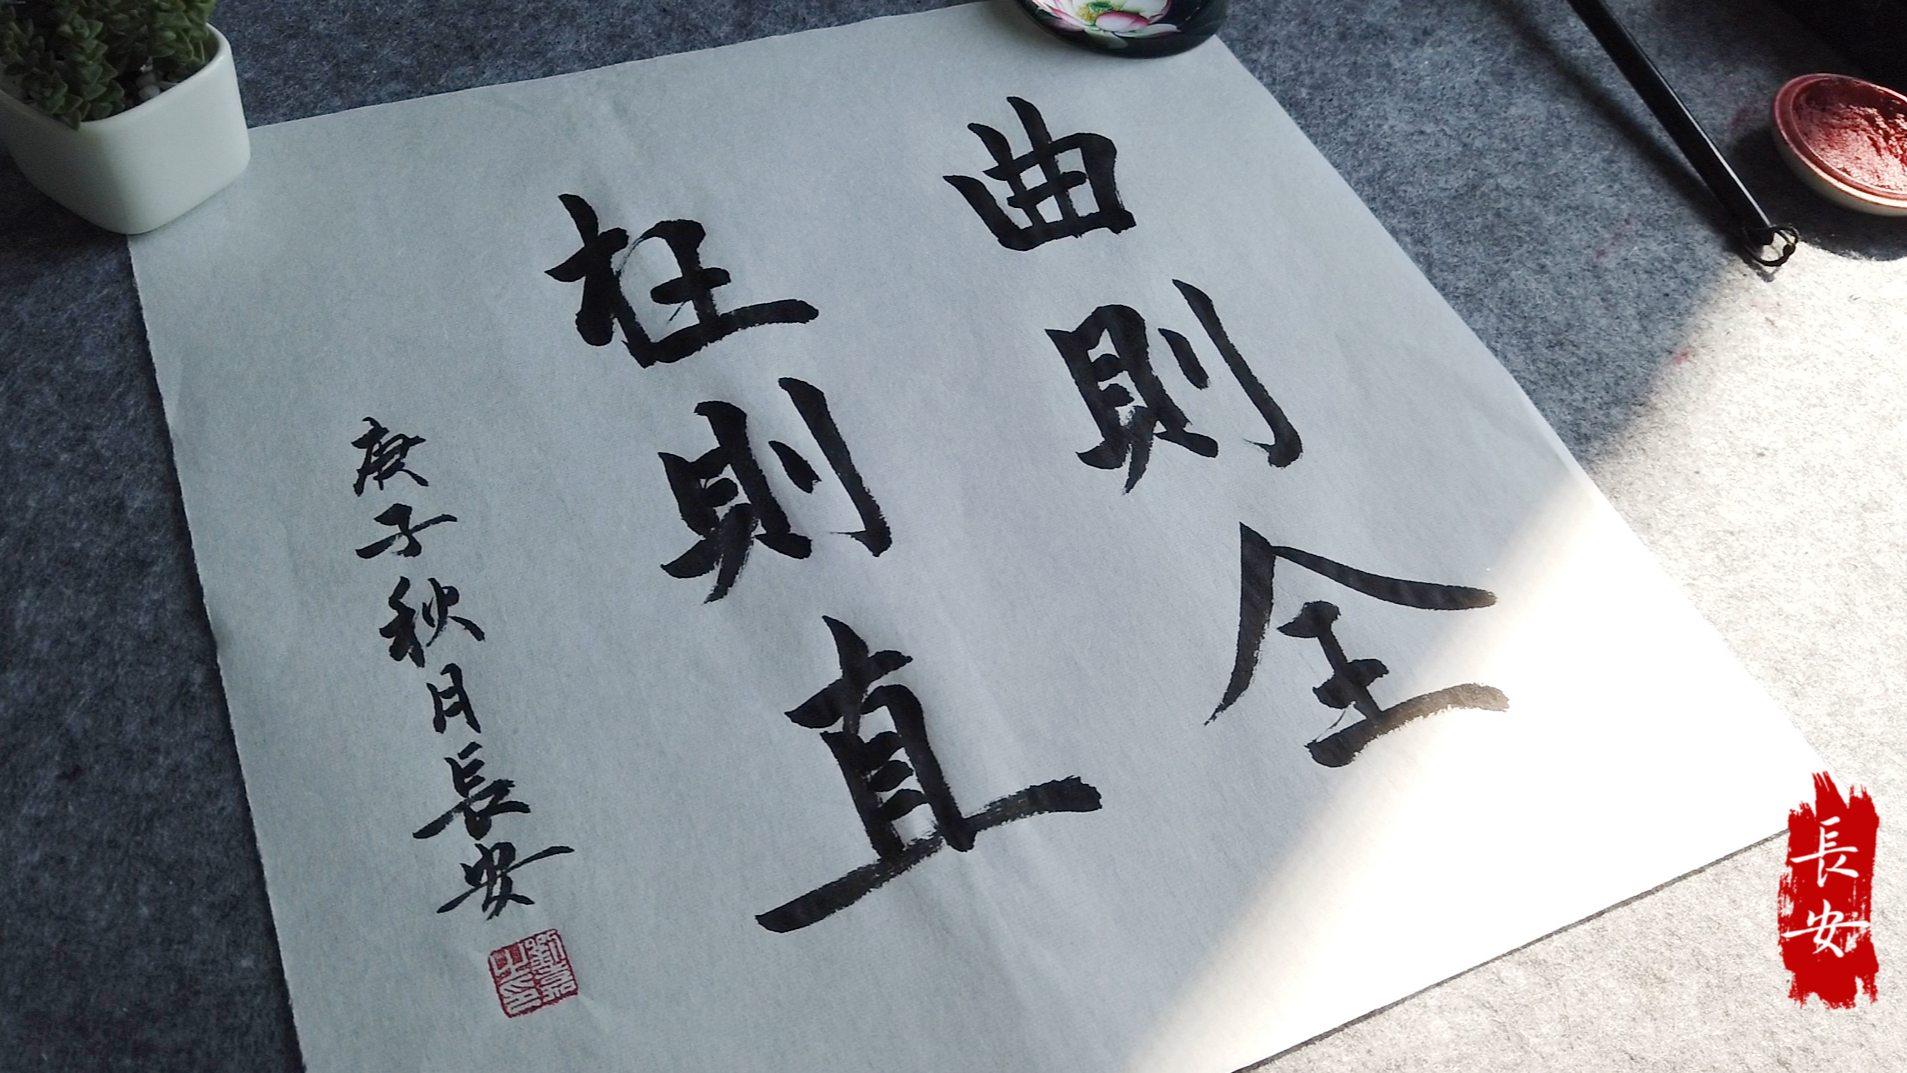 曲則全
枉則直
庚子秋月長安
長安